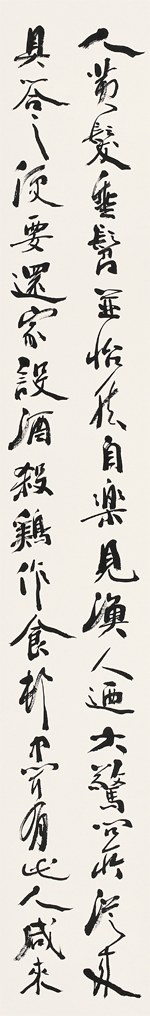 人黄髮垂髫並怡然自樂見漁人迺大驚問所從來
具答之便要還家設酒殺鷄作食邨中聞有此人咸來